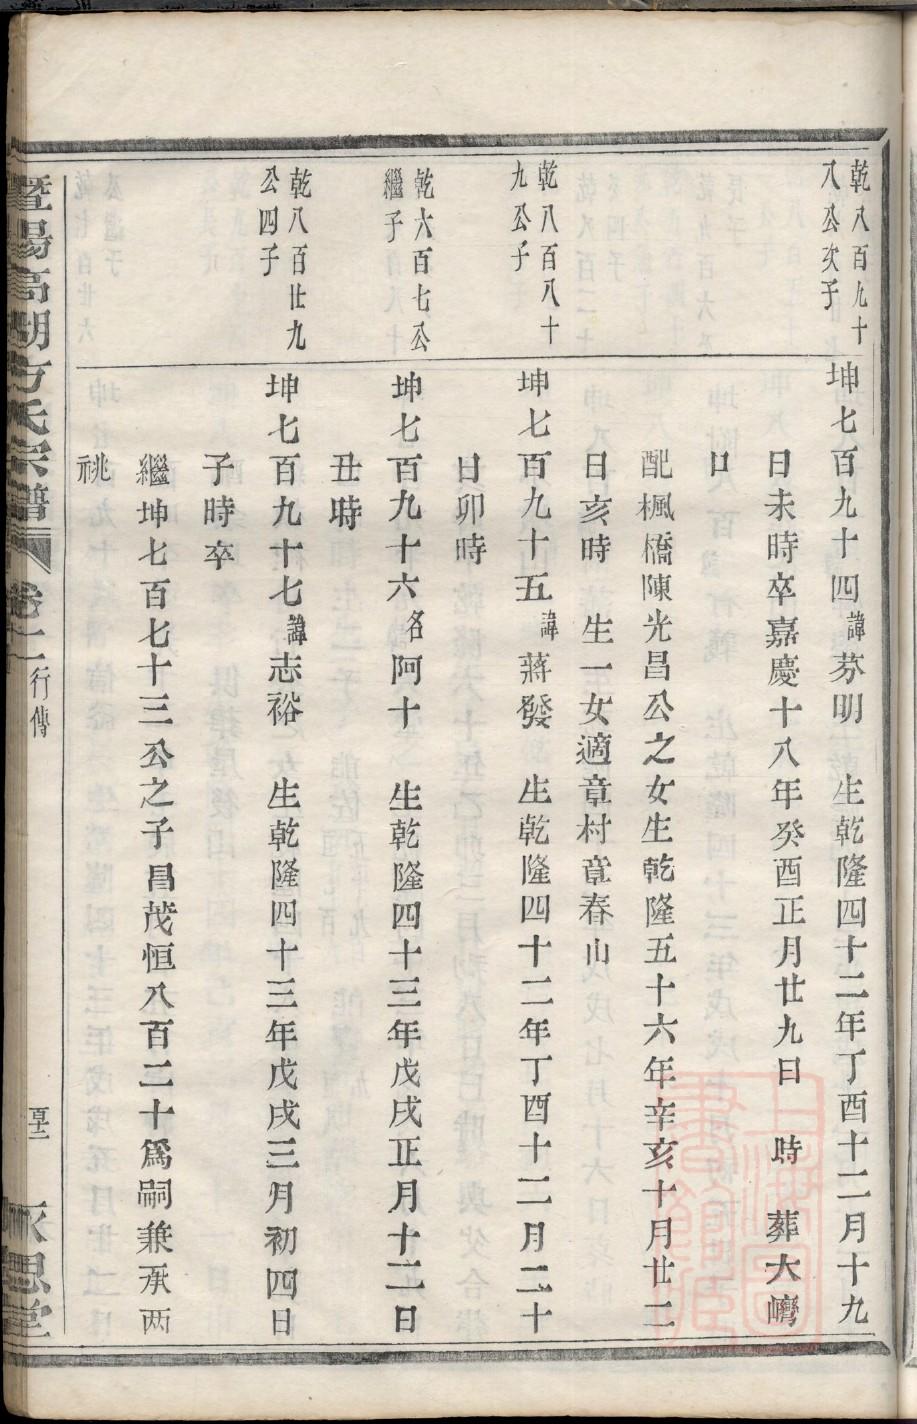 乾八百九十
八公次子
坤七百九十四諱芬明　生乾隆四十二年丁酉十二月十九
日未時卒嘉慶十八年癸酉正月廿九日　時　葬大㘭
配楓橋陳光昌公之女生乾隆五十六年辛亥十月廿二
日亥時　生一女適章村章春山
乾八百八十
九公子
坤七百九十五諱蔣發　生乾隆四十二年丁酉十二月二十
日卯時
乾六百七公
繼子
坤七百九十六名阿十　生乾隆四十三年戊戌正月十二日
丑時
乾八百廿九
公四子
坤七百九十七諱志裕　生乾隆四十三年戊戌三月初四日
子時卒
繼坤七百七十三公之子昌茂恒八百二十爲嗣兼承两
祧
暨陽高湖方氏宗譜　卷十一　行傳　永思堂